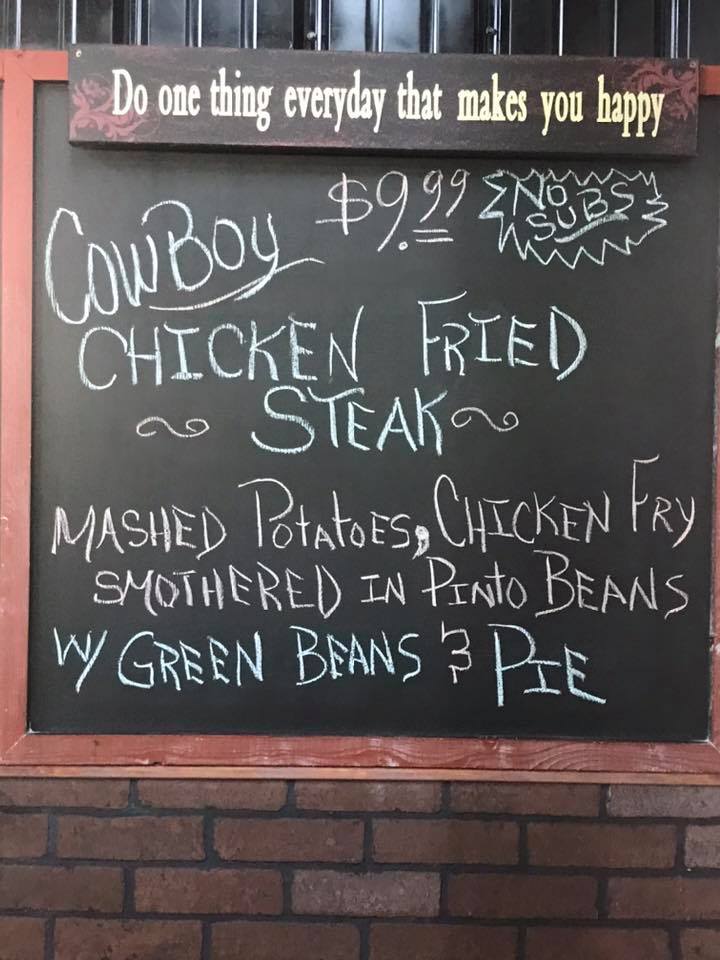 Do one thing everyday that makes you happy
$9.99 NO SUBS
COWBOY
CHICKEN FRIED
~ STEAK ~
MASHED POTATOES, CHICKEN FRY
SMOTHERED IN PINTO BEANS
W/ GREEN BEANS & PIE